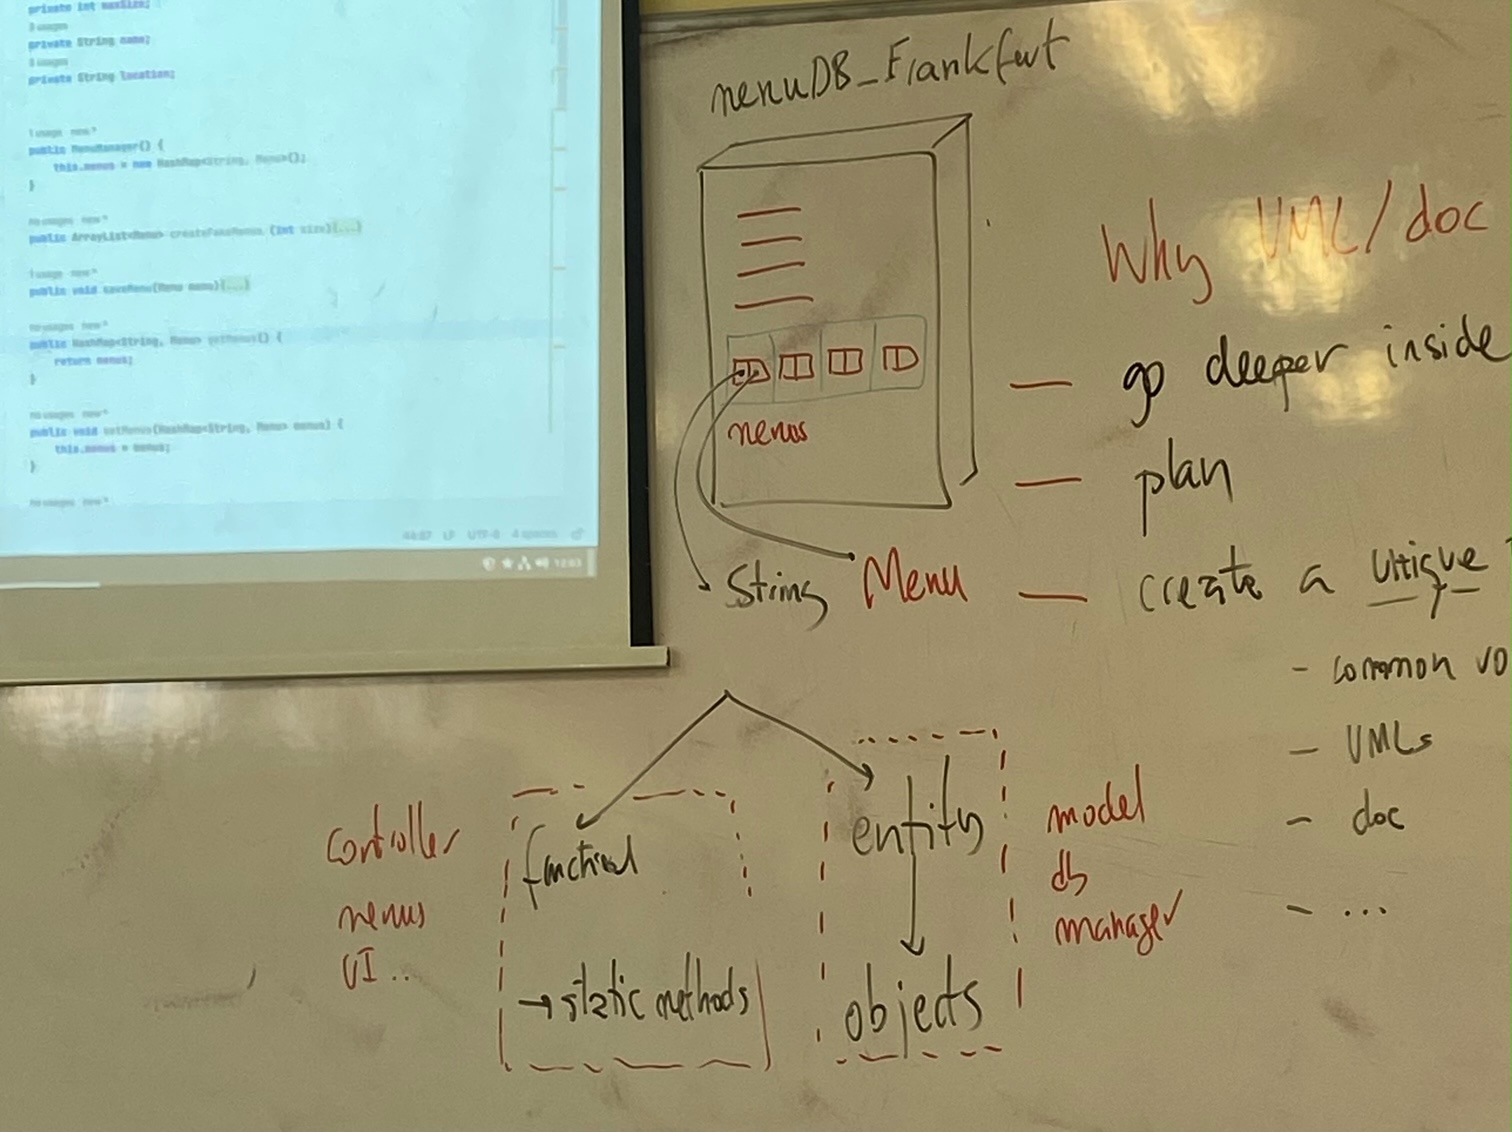 private int maxSize;
private String name;
private String location;
1 usage new *
public MenuManager() {
this.menus = new HashMap<String, Menu>();
}
no usages new *
public ArrayList<Menu> createFakeMenus (int size){...}
1 usage new *
public void saveMenu(Menu menu){...}
no usages new *
public HashMap<String, Menu> getMenus() {
return menus;
}
no usages new *
public void setMenus(HashMap<String, Menu> menus) {
this.menus = menus;
}
no usages new *
LF UTF-8 4 spaces
menuDB_Frankfurt
menus
String Menu
Why UML/doc
— go deeper inside
— plan
— create a unique
- common vo
- UMLs
- doc
- ...
controller
menus
UI ..
functional
→ static methods
entity
objects
model
db
manager